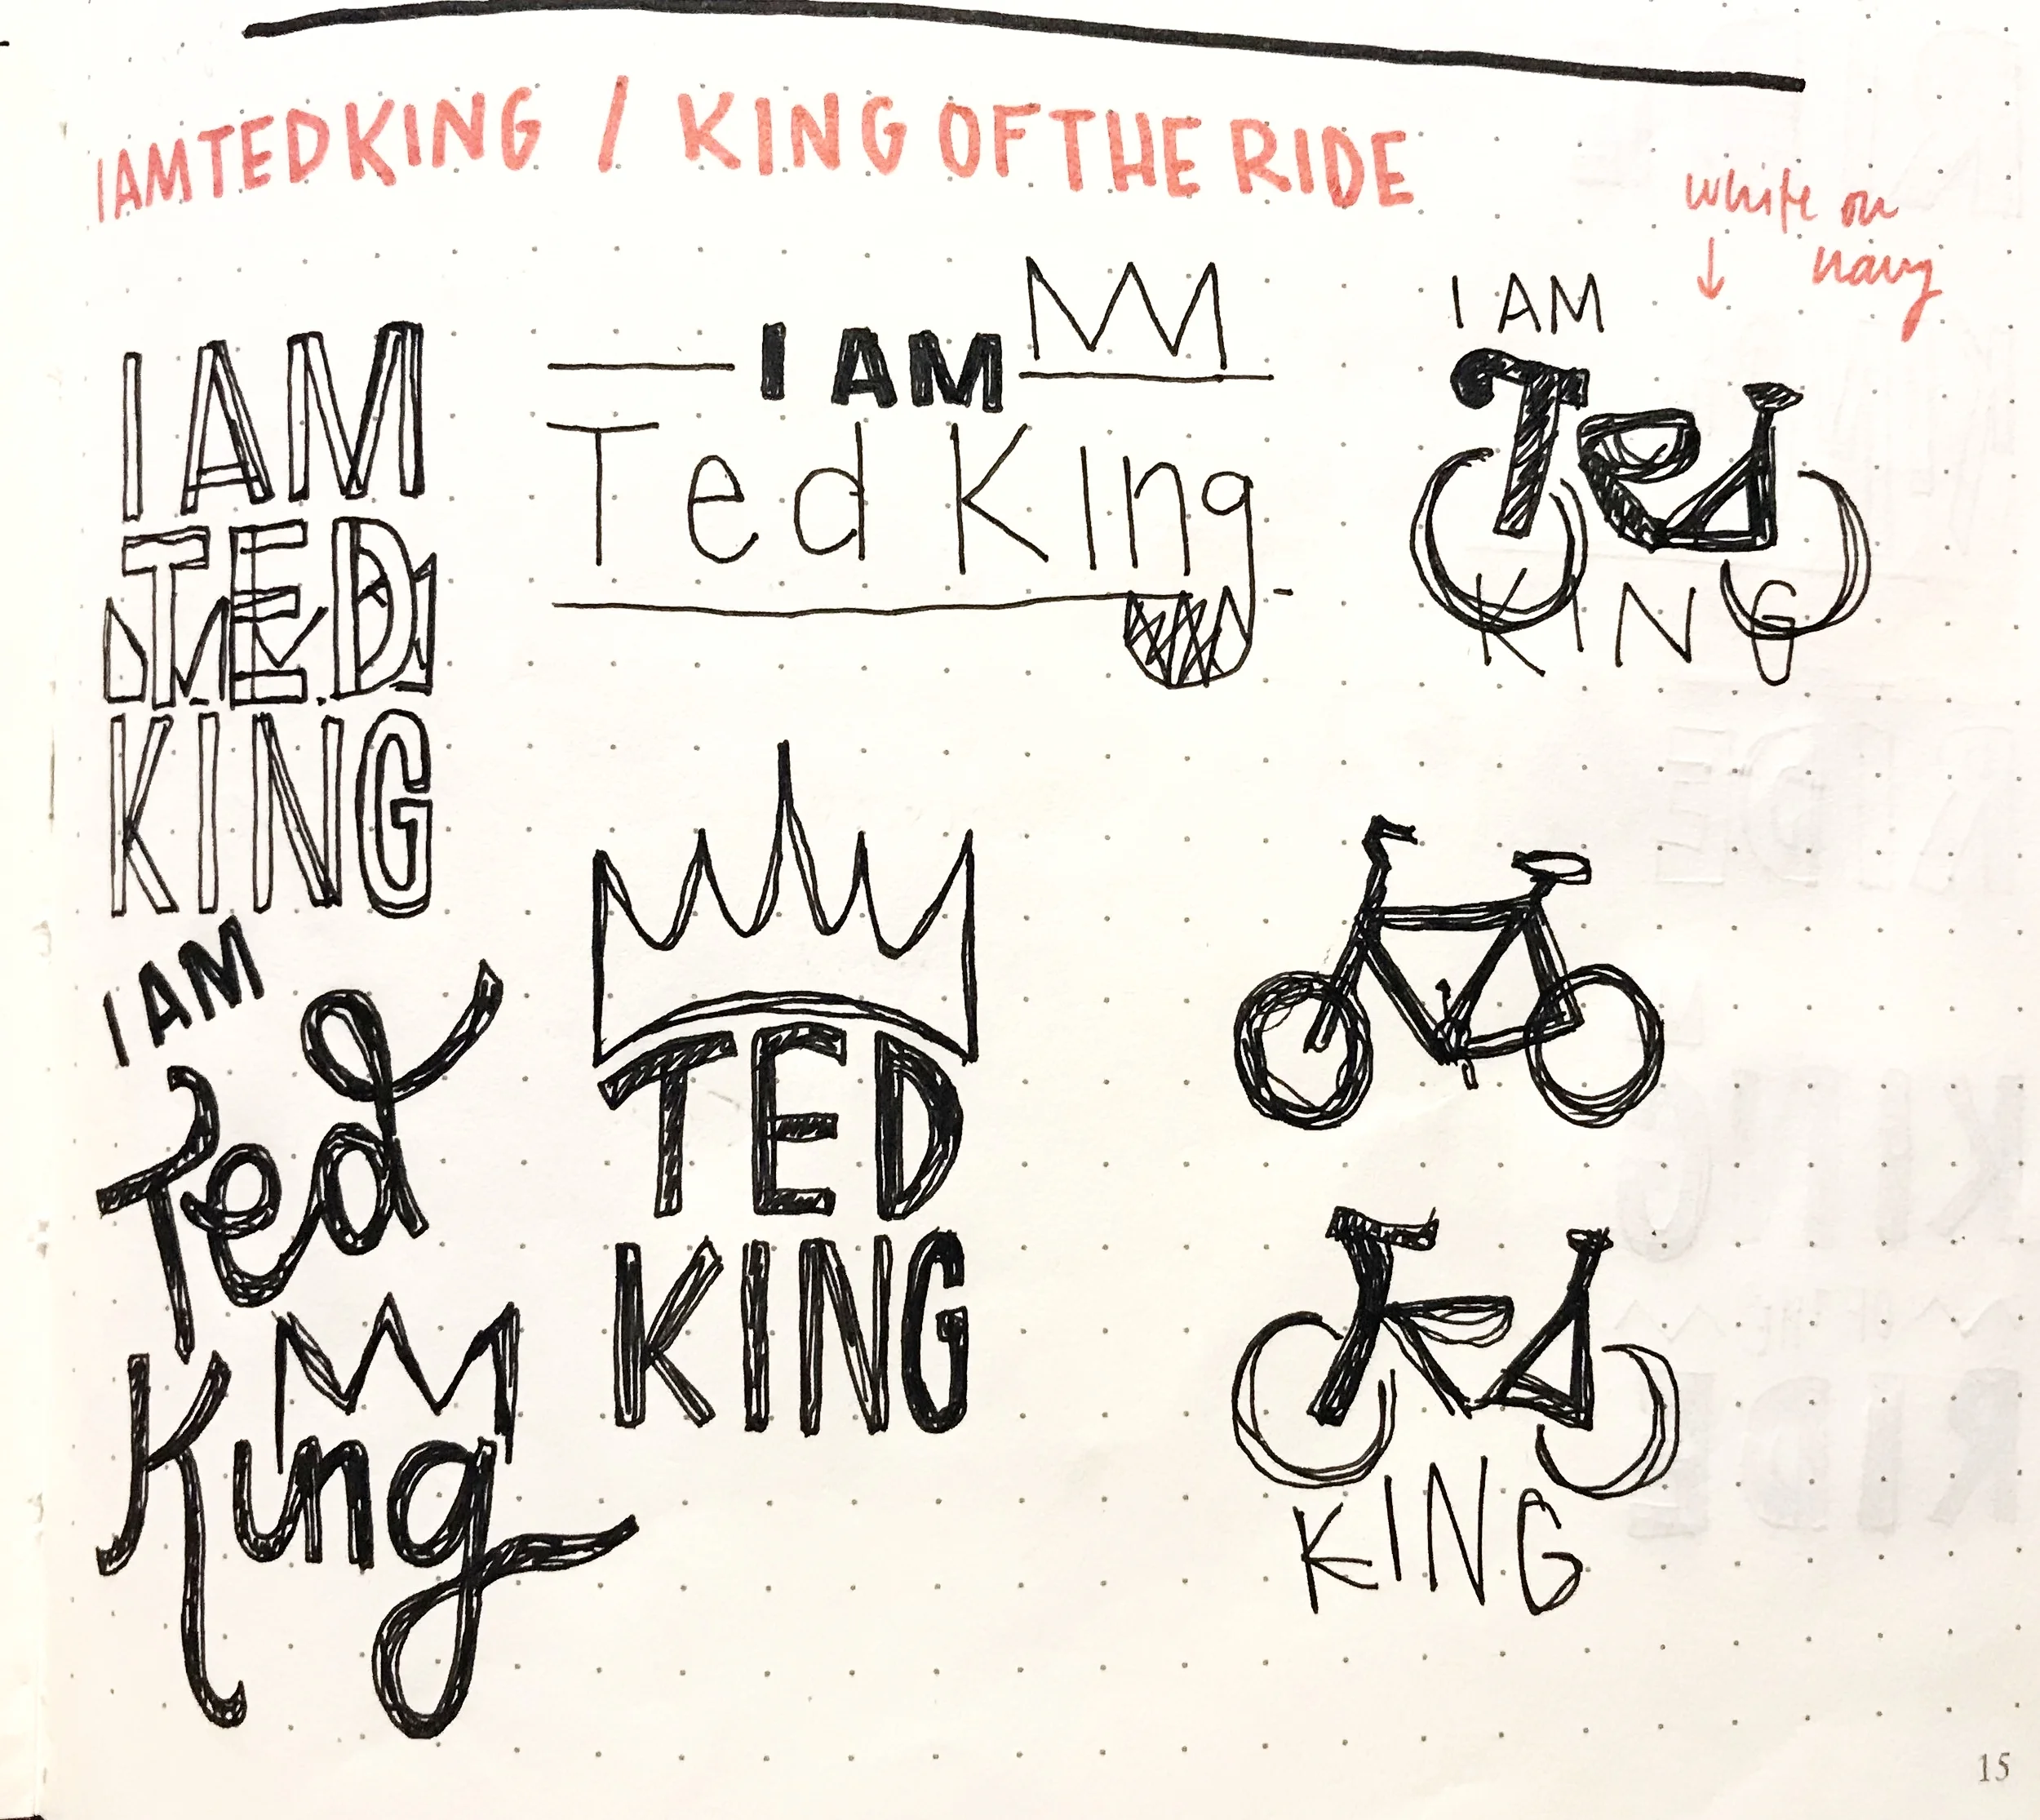 IAMTEDKING / KING OF THE RIDE
white on
navy
I AM
TED
KING
I AM
Ted KIng
I AM
Ted
KING
I AM
Ted
King
TED
KING
Ted
KING
15